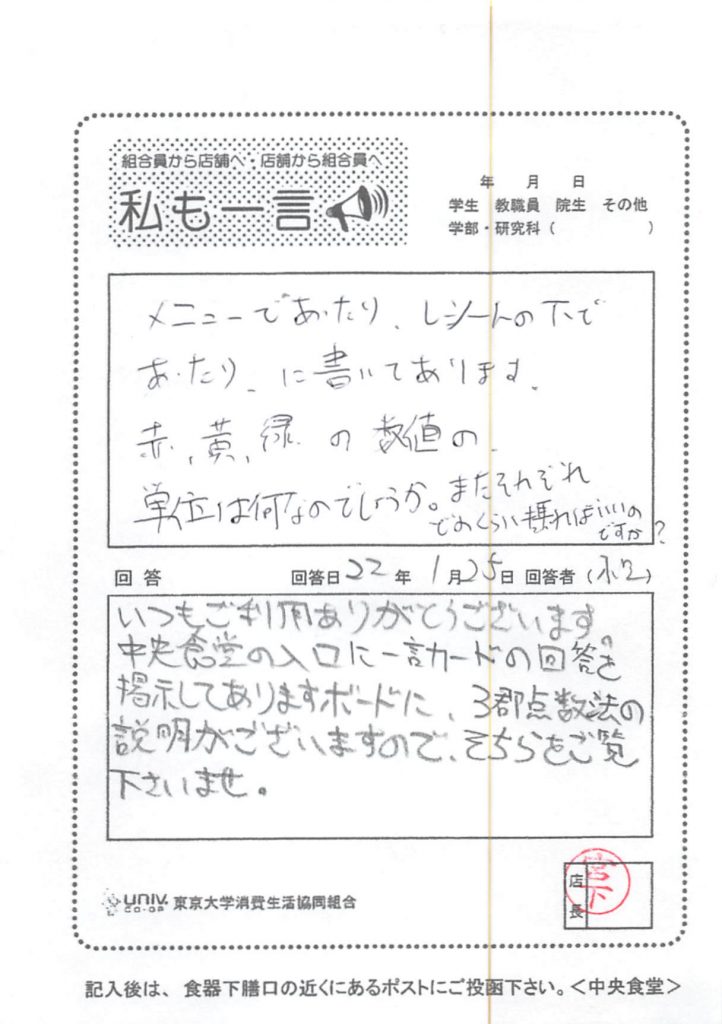 組合員から店舗へ・店舗から組合員へ
私も一言
年 月 日
学生 教職員 院生 その他
学部・研究科( )
メニューであったり、レシートの下で
あったり、に書いてあります。
赤、黄、緑 の 数値の
単位は何なのでしょうか。またそれぞれ
どのくらい摂ればいいの
ですか?
回答 回答日22年1月25日 回答者( )
いつもご利用ありがとうございます。
中央食堂の入口に一言カードの回答を
掲示してありますボードに、3郡点数法の
説明がございますので、そちらをご覧
下さいませ。
店長
宮下
univ.
CO-OP
東京大学消費生活協同組合
記入後は、食器下膳口の近くにあるポストにご投函下さい。<中央食堂>